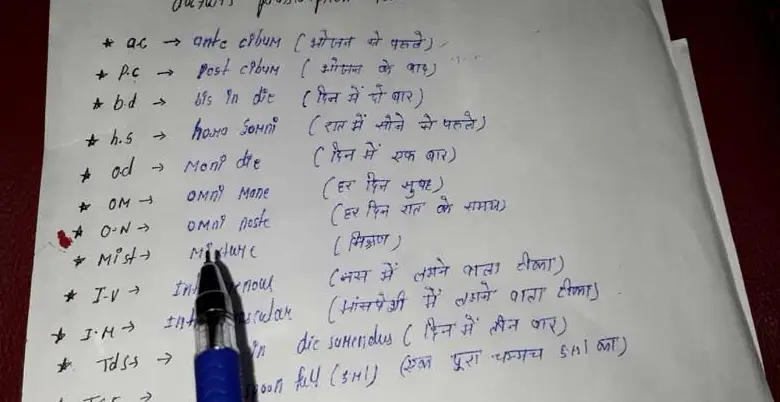 ★ a.c → ante cibum (भोजन से पहले)
★ P.c → Post cibum (भोजन के बाद)
★ b.d → bis in die (दिन में दो बार)
★ h.s → hora somni (रात में सोने से पहले)
★ od → Moni die (दिन में एक बार)
★ OM → OMNI Mane (हर दिन सुबह)
★ O-N → OMNI noste (हर दिन रात के समय)
★ Mist → Mixture (मिश्रण)
★ I-V → (नस में लगने वाला टीका)
★ I-M → (मांसपेशी में लगने वाला टीका)
★ Tdss → in die sumendus (दिन में तीन बार)
full (5Ml) (एक पूरा चम्मच 5Ml का)